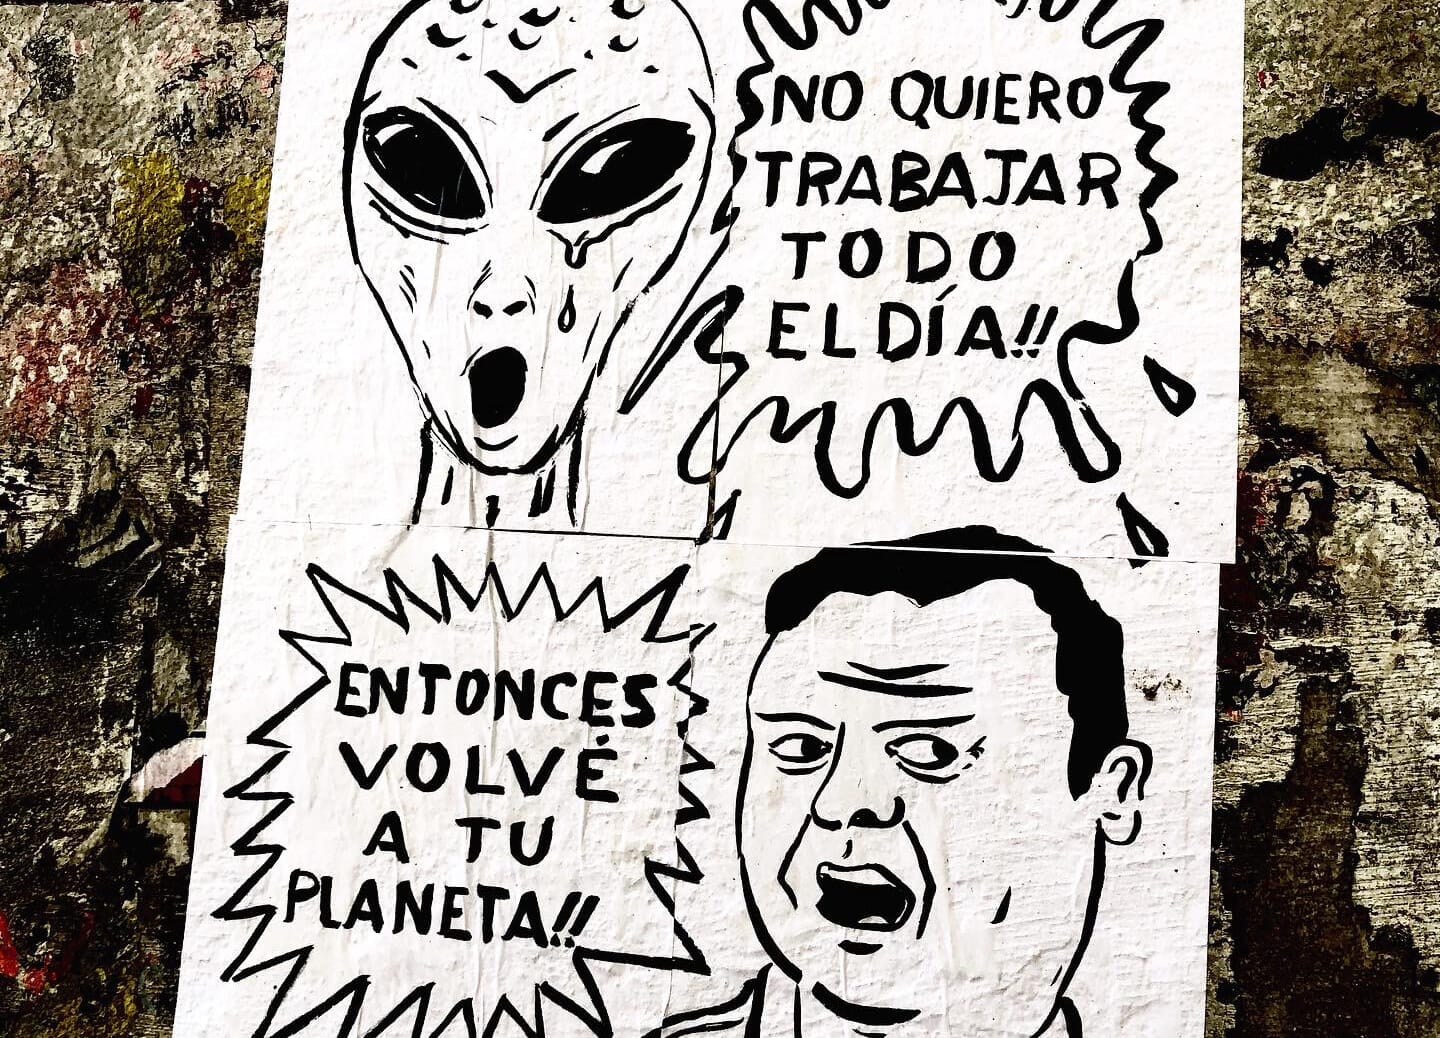 NO QUIERO
TRABAJAR
TODO
EL DÍA!!
ENTONCES
VOLVÉ
A TU
PLANETA!!